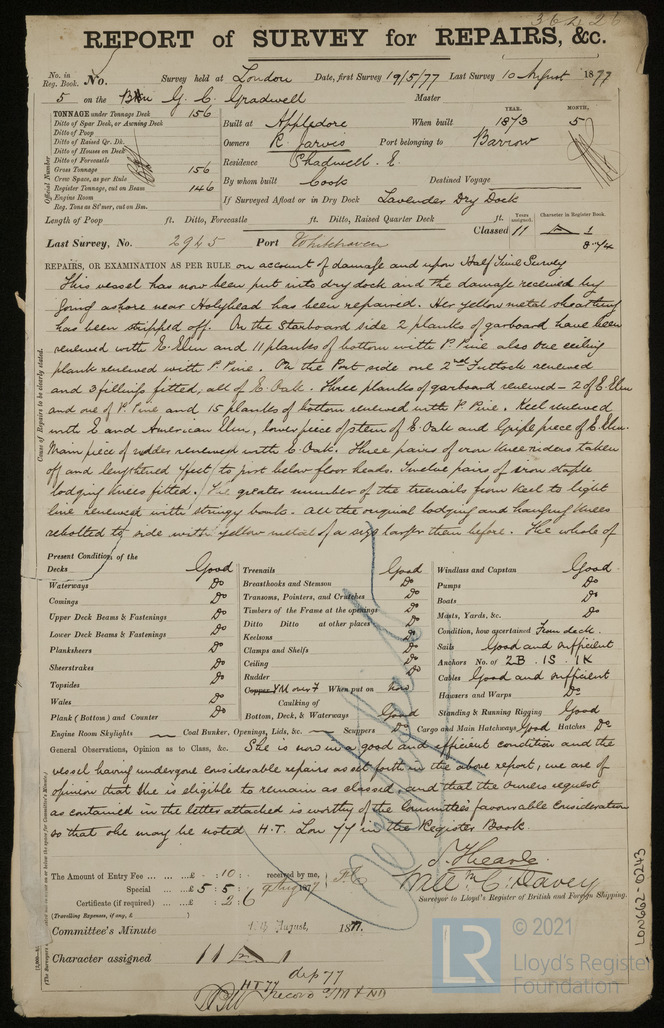 REPORT of SURVEY for REPAIRS, &c.
No. in Reg. Book. No. Survey held at London Date, first Survey 19/5/77 Last Survey 10 August 1877
5 on the G. C. Gradwell Master
TONNAGE under Tonnage Deck 156
Ditto of Spar Deck, or Awning Deck
Ditto of Poop
Ditto of Raised Qr. Dk.
Ditto of Houses on Deck
Ditto of Forecastle
Gross Tonnage 156
Crew Space, as per Rule
Register Tonnage, cut on Beam 146
Engine Room
Reg. Tons as St'mer, cut on Bm.
Official Number
YEAR. MONTH.
Built at Appledore When built 1873 5
Owners R. Jarvis Port belonging to Barrow
Residence Shadwell. E.
By whom built Cook Destined Voyage
If Surveyed Afloat or in Dry Dock Lavender Dry Dock
Length of Poop ft. Ditto, Forecastle ft. Ditto, Raised Quarter Deck ft.
Years assigned. Character in Register Book.
Classed 11 A 1
Last Survey, No. 2945 Port Whitehaven
REPAIRS, OR EXAMINATION AS PER RULE on account of damage and upon Half Time Survey
This vessel has now been put into dry dock and the damage received by
going ashore near Holyhead has been repaired. Her yellow metal sheathing
has been stripped off. On the Starboard side 2 planks of garboard have been
renewed with E. Elm and 11 planks of bottom with P. Pine also one ceiling
plank renewed with P. Pine. On the Port side one 2nd Futtock renewed
and 3 fillings fitted, all of E. Oak. Three planks of garboard renewed - 2 of E. Elm
and one of P. Pine and 15 planks of bottom renewed with P. Pine. Keel renewed
with E and American Elm, lower piece of stem of E. Oak and Gripe piece of E. Elm.
Main piece of rudder renewed with E. Oak. Three pairs of iron knee riders taken
off and lengthened 4 feet to prt below floor heads. Twelve pairs of iron staple
lodging knees fitted. The greater number of the treenails from keel to light
line renewed with stringy bark. All the original lodging and hanging knees
rebolted to side with yellow metal of a size larger then before. The whole of
Cause of Repairs to be clearly stated.
Present Condition of the
Decks Good
Waterways Do
Comings Do
Upper Deck Beams & Fastenings Do
Lower Deck Beams & Fastenings Do
Plansheers Do
Sheerstrakes Do
Topsides Do
Wales Do
Plank (Bottom) and Counter Do
Engine Room Skylights — Coal Bunker, Openings, Lids, &c. — Scuppers Do Cargo and Main Hatchways Good Hatches Do
Treenails Good
Breasthooks and Stemson Do
Transoms, Pointers, and Crutches Do
Timbers of the Frame at the openings Do
Ditto Ditto at other places Do
Keelsons Do
Clamps and Shelfs Do
Ceiling Do
Rudder Do
Copper YM over F When put on now
Caulking of
Bottom, Deck, & Waterways Good
Windlass and Capstan Good
Pumps Do
Boats Do
Masts, Yards, &c. Do
Condition, how ascertained From deck.
Sails Good and sufficient
Anchors No. of 2B. 1S. 1K
Cables Good and sufficient
Hawsers and Warps Do
Standing & Running Rigging Good
General Observations, Opinion as to Class, &c. She is now in a good and efficient condition and the
vessel having undergone considerable repairs as set forth in the above report, we are of
opinion that she is eligible to remain as classed, and that the owners request
as contained in the letter attached is worthy of the Committee's favourable consideration
so that she may be noted H.T. Lon 77 in the Register Book.
The Amount of Entry Fee ... ...£ : 10 : received by me,
Special ... ...£ 5 : 5 : 6
Certificate (if required) ... : 2 : 6
(Travelling Expenses, if any, £ )
Wm C. Davey
Surveyor to Lloyd's Register of British and Foreign Shipping.
Committee's Minute August, 1877.
Character assigned 11 A 1
H.T 77
LON662-0243
© 2021
LR
Lloyd's Register
Foundation